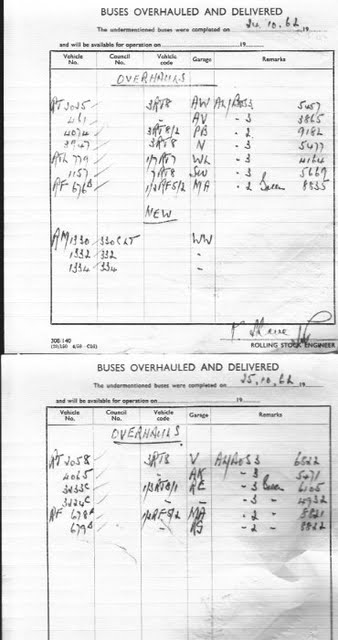 BUSES OVERHAULED AND DELIVERED
The undermentioned buses were completed on 24.10.62 19
and will be available for operation on 19
Vehicle No. Council No. Vehicle code Garage Remarks
OVERHAULS
RT 3025 3RT8 AW 3 5457
461 - AV - 3 3865
4074 3RT8/2 PB - 2 9182
3947 3RT8 N - 3 5477
RTL 779 1/7RT7 WL - 3 4164
1157 /7RT8 SW - 3 5669
RF 676 1/2RF5/2 MA - 2 Green 8835
NEW
RM 1330 330CLT WW
1332 332 -
1334 334 -
ROLLING STOCK ENGINEER
BUSES OVERHAULED AND DELIVERED
The undermentioned buses were completed on 25.10.62 19
and will be available for operation on 19
Vehicle No. Council No. Vehicle code Garage Remarks
OVERHAULS
RT 2058 3RT8 V 3 6522
4065 - AK - 3 5471
3233 1/3RT8/1 RE - 3 Green 6105
3224 - - - 3 - 4932
RF 678 1/2RF5/2 MA - 2 - 8821
679 - RG - 2 - 8822